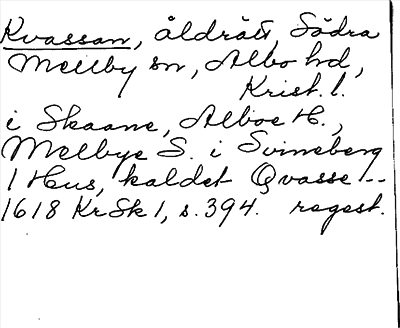 Kvassan, åldrätt, Södra
Mellby sn, Albo hd,
Krist. l.
i Skaane, Alboe H.,
Melbye S. i Svineberg
1 Hus, kaldet Qvasse --
1618 KrSk 1, s. 394. regest.